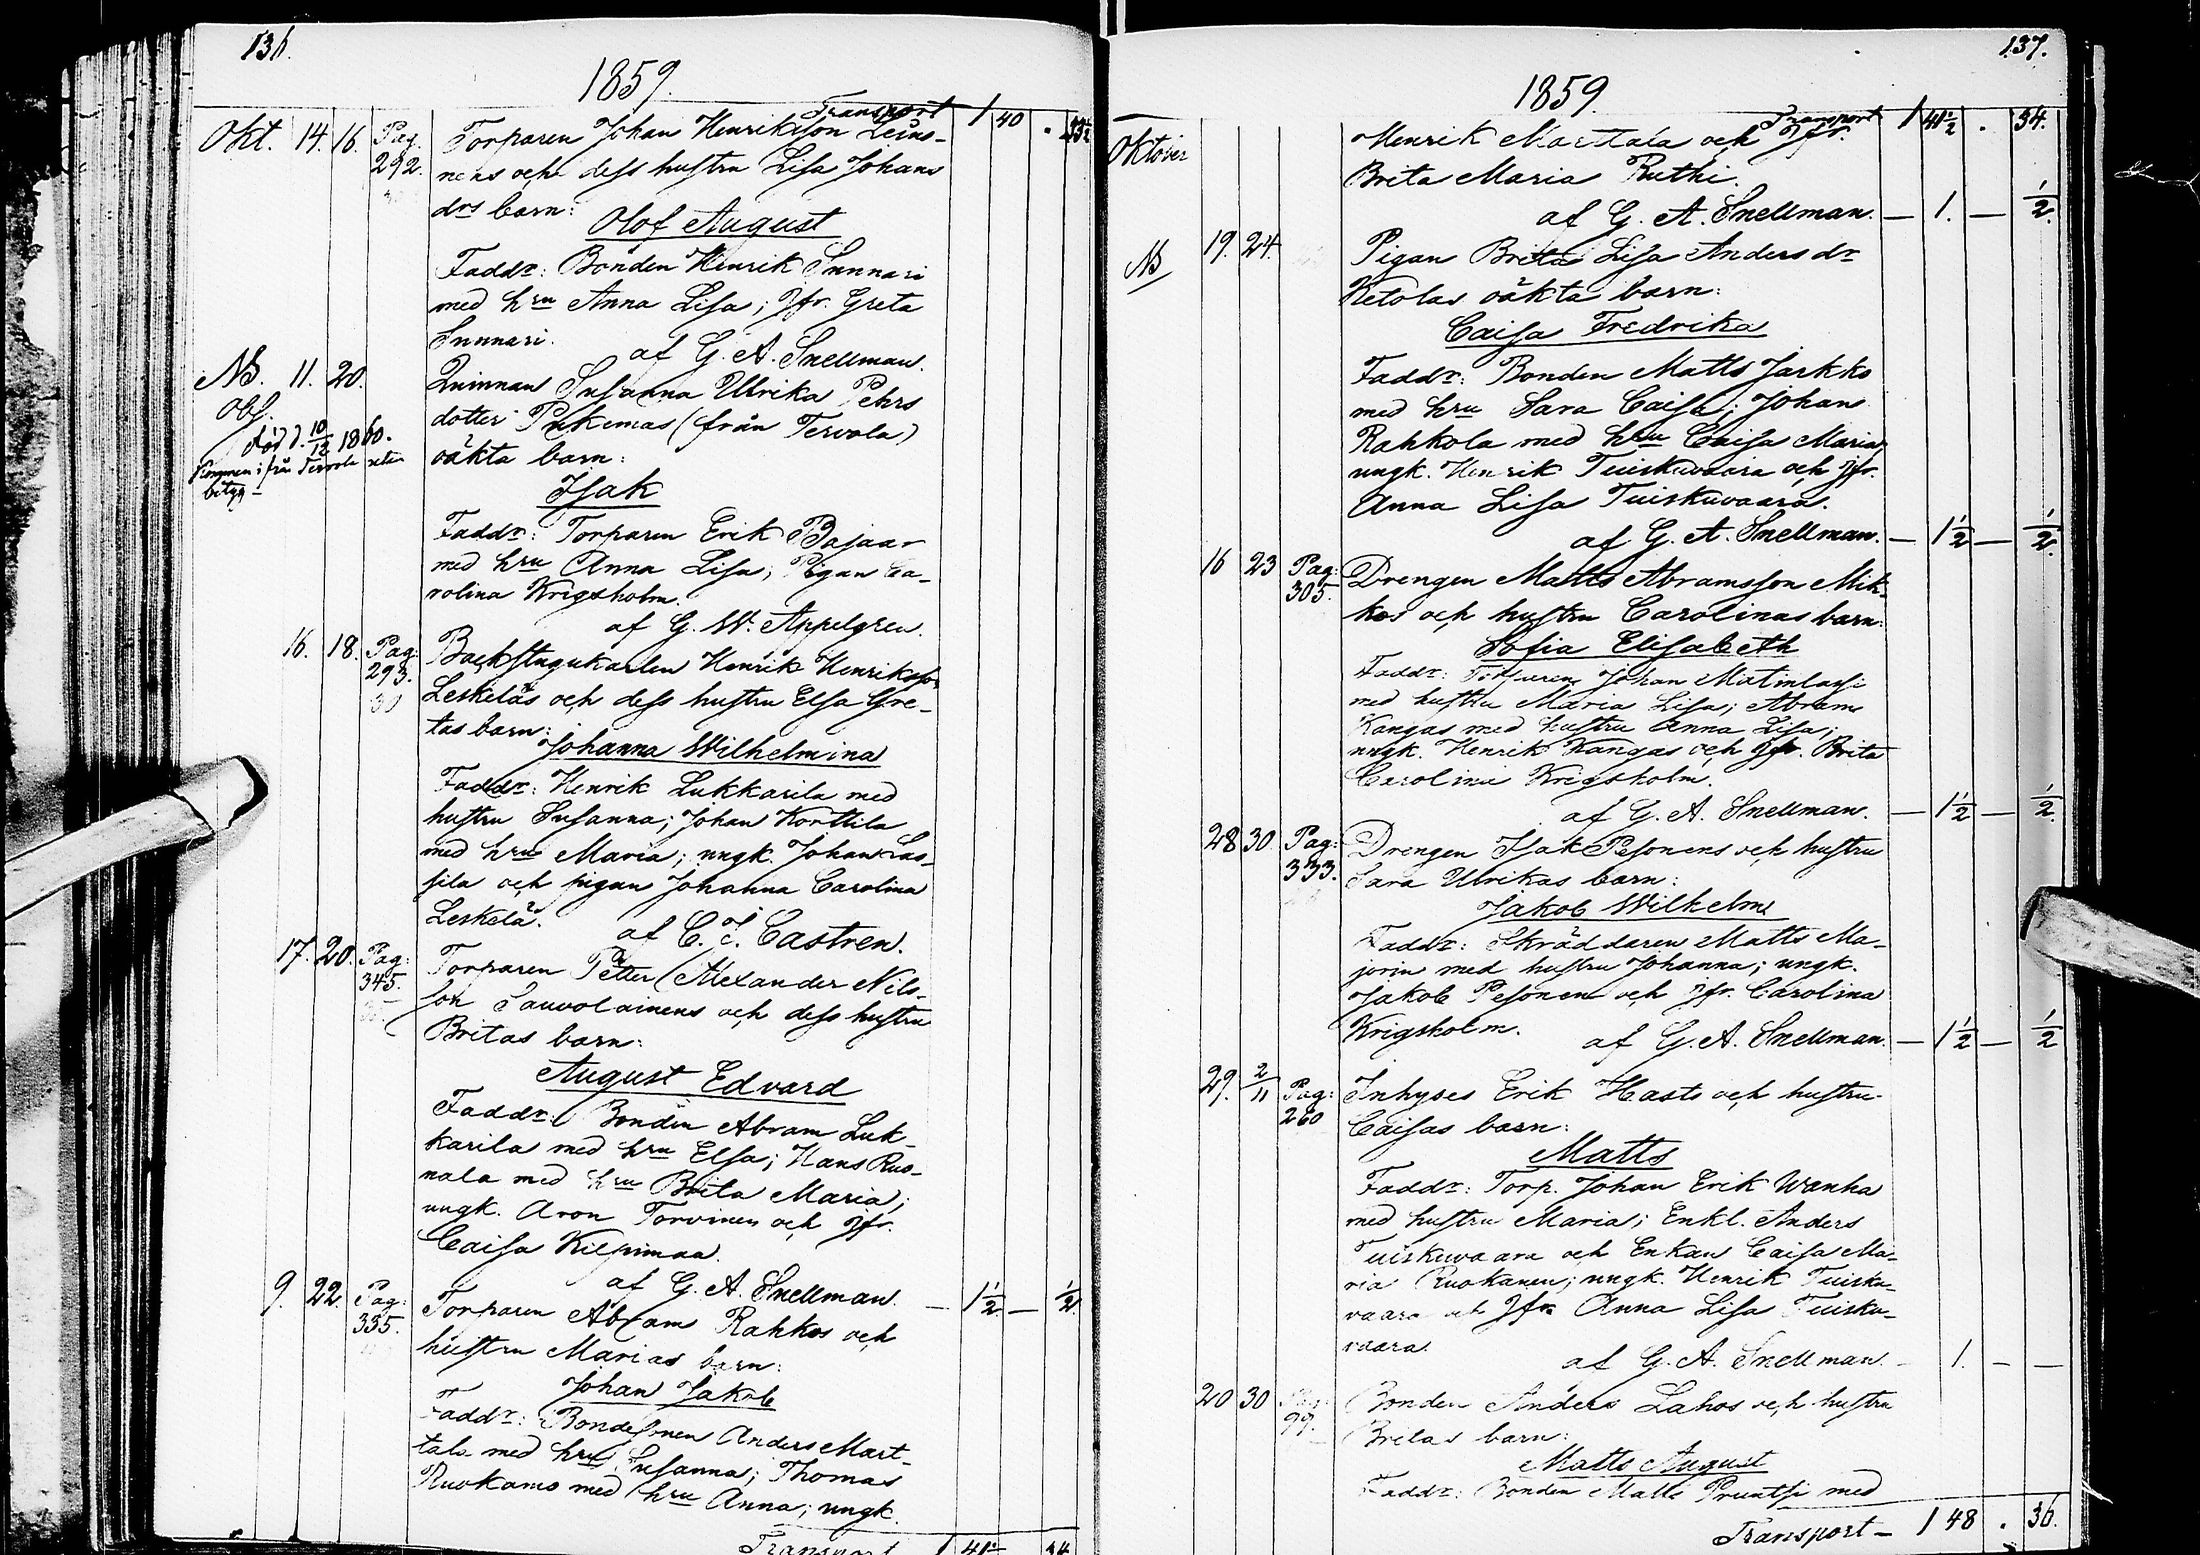 136.
1859.
Transport 1 40 . 33½
Okt. 14. 16. Pag. 292. Torparen Johan Henriksson Leino-
nens och dess hustru Lisa Johans
drs barn:
Olof August
Faddr: Bonden Henrik Sunnari
med hru Anna Lisa; Jfr. Greta
Sunnari.
af G. A. Snellman.
NB. 11. 20. Qvinnans Susanna Ulrika Pehrs
Obs. dotter Pukemas (från Tervola)
död d. 10/12 1860. oäkta barn:
Kommen ifrån Tervola utan
betyg –
Isak
Faddr: Torparen Erik Pajaar
med hru Anna Lisa; Pigan Ca-
rolina Krigsholm.
af G. W. Appelgren.
16. 18. Pag: 293. Backstugukarlen Henrik Henriksson
Leskeläs och dess hustru Elsa Gre-
tas barn:
Johanna Wilhelmina
Faddr: Henrik Lukkarila med
hustru Susanna; Johan Korttila
med hru Maria; ungk. Johan Las-
sila och pigan Johanna Carolina
Leskelä.
af C. J. Castren.
17. 20. Pag: 345. Torparen Petter Alexander Nils-
son Sauvolainens och dess hustru
Britas barn:
August Edvard
Faddr: Bonden Abram Luk-
karila med hru Elsa; Hans Ruo-
nala med hru Brita Maria;
ungk. Aron Torvinen och Jfr.
Caisa Kilpimaa.
af G. A. Snellman. – 1½ – ½
9. 22. Pag: 335. Torparen Abram Rahkos och
hustru Marias barn:
Johan Jakob
Faddr: Bondesonen Anders Mart-
tala med hru Susanna; Thomas
Ruokamo med hru Anna; ungk.
Transport 1 41½ 34
137.
1859.
Transport 1 41½ . 34.
Oktober
Henrik Marttala och Jfr.
Brita Maria Ruthi.
af G. A. Snellman. – 1. – ½.
NB 19. 24. Pigan Brita Lisa Anders dr
Ketolas oäkta barn:
Caisa Fredrika
Faddr: Bonden Matts Jarkko
med hru Sara Caisa; Johan
Rahkola med hru Caisa Maria;
ungk. Henrik Tuiskuvaara och Jfr.
Anna Lisa Tuiskuvaara.
af G. A. Snellman. – 1½ – ½.
16 23 Pag: 305. Drengen Matts Abramsson Mik-
kos och hustru Carolinas barn:
Sofia Elisabeth
Faddr: Torparen Johan Matinlassi
med hustru Maria Lisa; Abram
Kangas med hustru Anna Lisa;
ungk. Henrik Kangas och Jfr. Brita
Carolina Krigsholm.
af G. A. Snellman. – 1½ – ½.
28 30. Pag: 333. Drengen Isak Pesonens och hustru
Sara Ulrikas barn:
Jakob Wilhelm
Faddr: Skräddaren Matts Ma-
jorin med hustru Johanna; ungk.
Jakob Pesonen och Jfr. Carolina
Krigsholm.
af G. A. Snellman. – 1½ – ½
29. 2/11 Pag: 260 Inhyses Erik Hasts och hustru
Caisas barn:
Matts
Faddr: Torp. Johan Erik Wanha
med hustru Maria; Enkl. Anders
Tuiskuvaara och Enkan Caisa Ma-
ria Ruokanen; ungk. Henrik Tuisku-
vaara och Jfr Anna Lisa Tuisku-
vaara.
af G. A. Snellman. – 1. – –
20 30 99. Bonden Anders Lahos och hustru
Britas barn:
Matts August
Faddr: Bonden Matts Pruntsi med
Transport – 1 48 . 36.